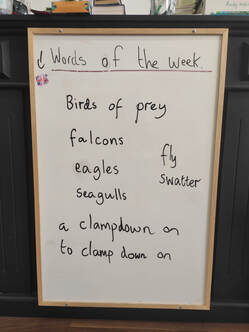 Words of the week.
Birds of prey
falcons
eagles
seagulls
fly
swatter
a clampdown on
to clamp down on